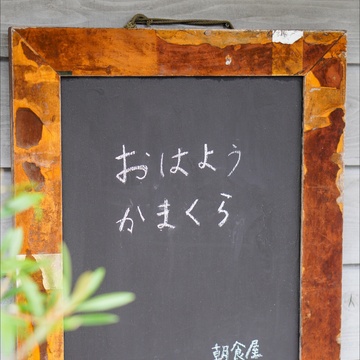 おはよう
かまくら
朝食屋